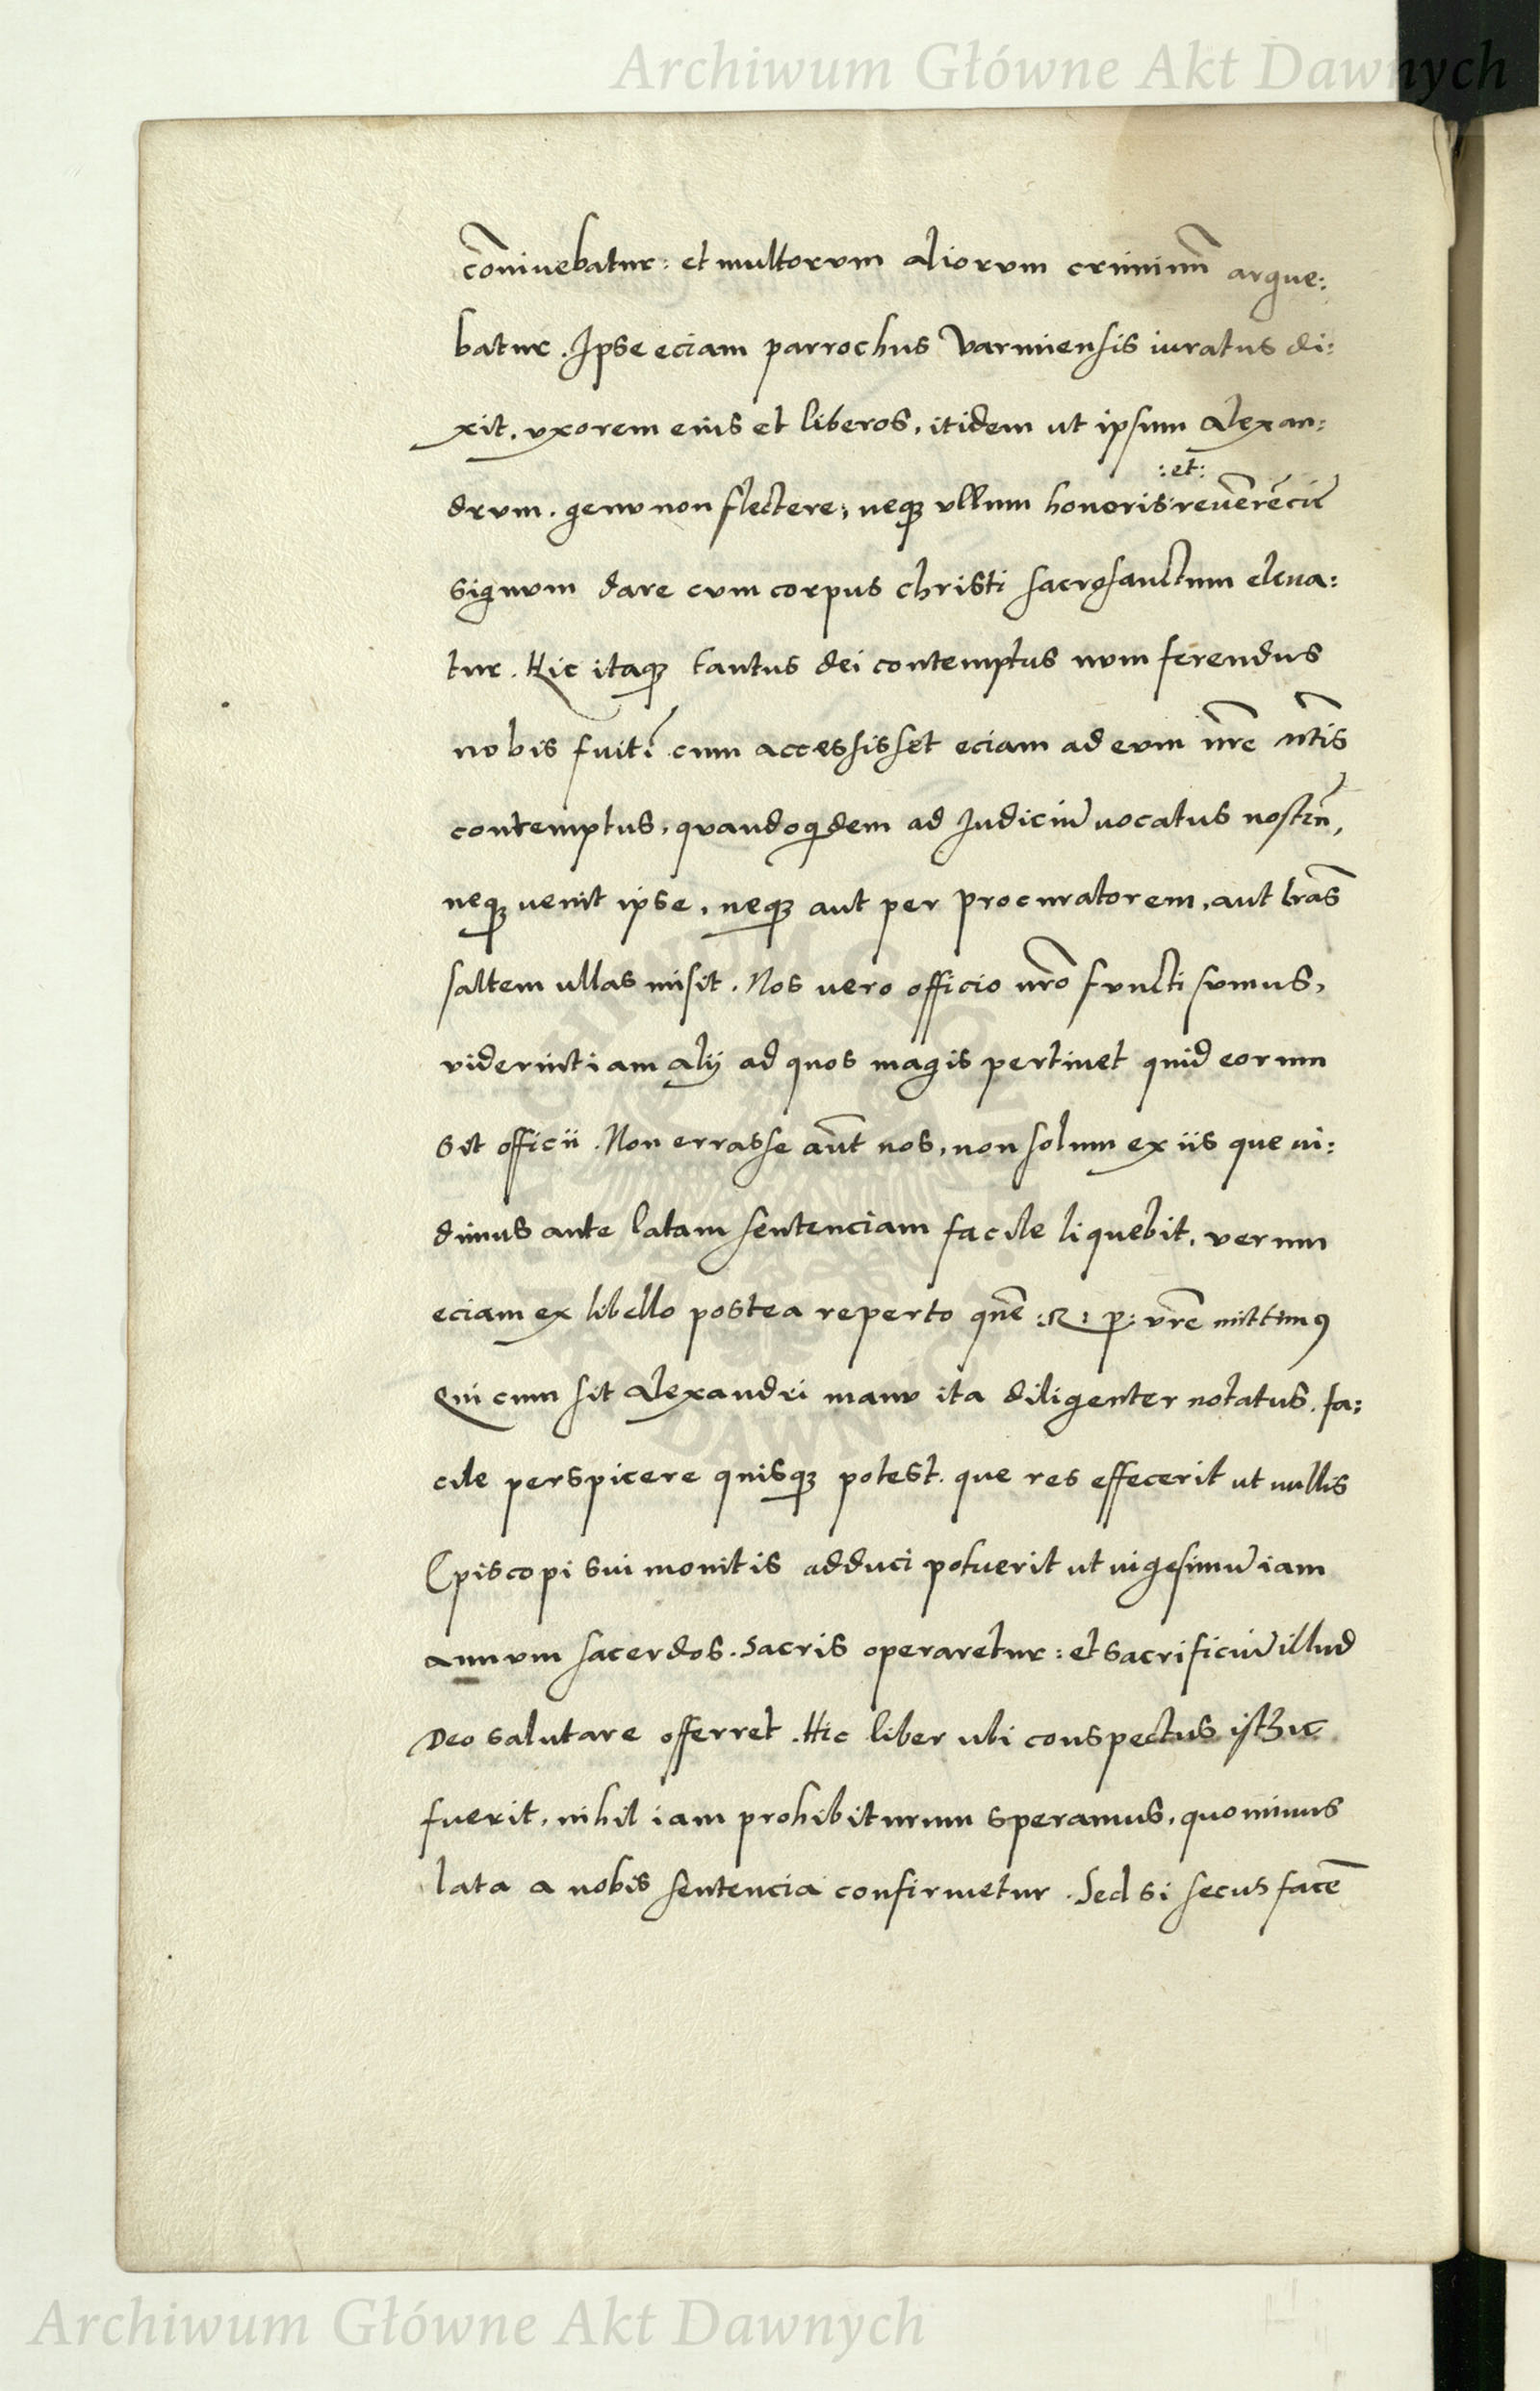 Archiwum Główne Akt Dawnych
cōnivebatur: et multorum aliorum criminū argue:
batur. Ipse eciam parrochus Varmiensis iuratus di:
xit, uxorem eius et liberos, itidem ut ipsum Alexan:
:et:
drum, genu non flectere, neqȝ ullum honoris reverēcie
signum dare cum corpus christi sacrosanctum eleva:
tur. Hic itaqȝ tantus dei contemptus num ferendus
nobis fuit? cum accessisset eciam ad eum nrē
contemptus, quandoqdem ad Iudiciū vocatus nostrū,
neqȝ venit ipse, neqȝ aut per procuratorem, aut lrās
saltem ullas misit. Nos vero officio nrō functi sumus,
viderint iam alij ad quos magis pertinet quid eorum
sit officii. Non errasse aūt nos, non solum ex iis que vi:
dimus ante latam sentenciam facile liquebit, verum
eciam ex libello postea reperto quē :R: p: vrē mittimꝰ
Qui cum sit Alexandri manu ita diligenter notatus, fa:
cile perspicere quisqȝ potest, que res effecerit ut nullis
Episcopi sui monitis adduci potuerit ut vigesimū iam
annum sacerdos, sacris operaretur: et sacrificiū illud
Deo salutare offerret. Hic liber ubi conspectus isthic
fuerit, nihil iam prohibiturum speramus, quominus
lata a nobis sentencia confirmetur. Sed si secus
Archiwum Główne Akt Dawnych